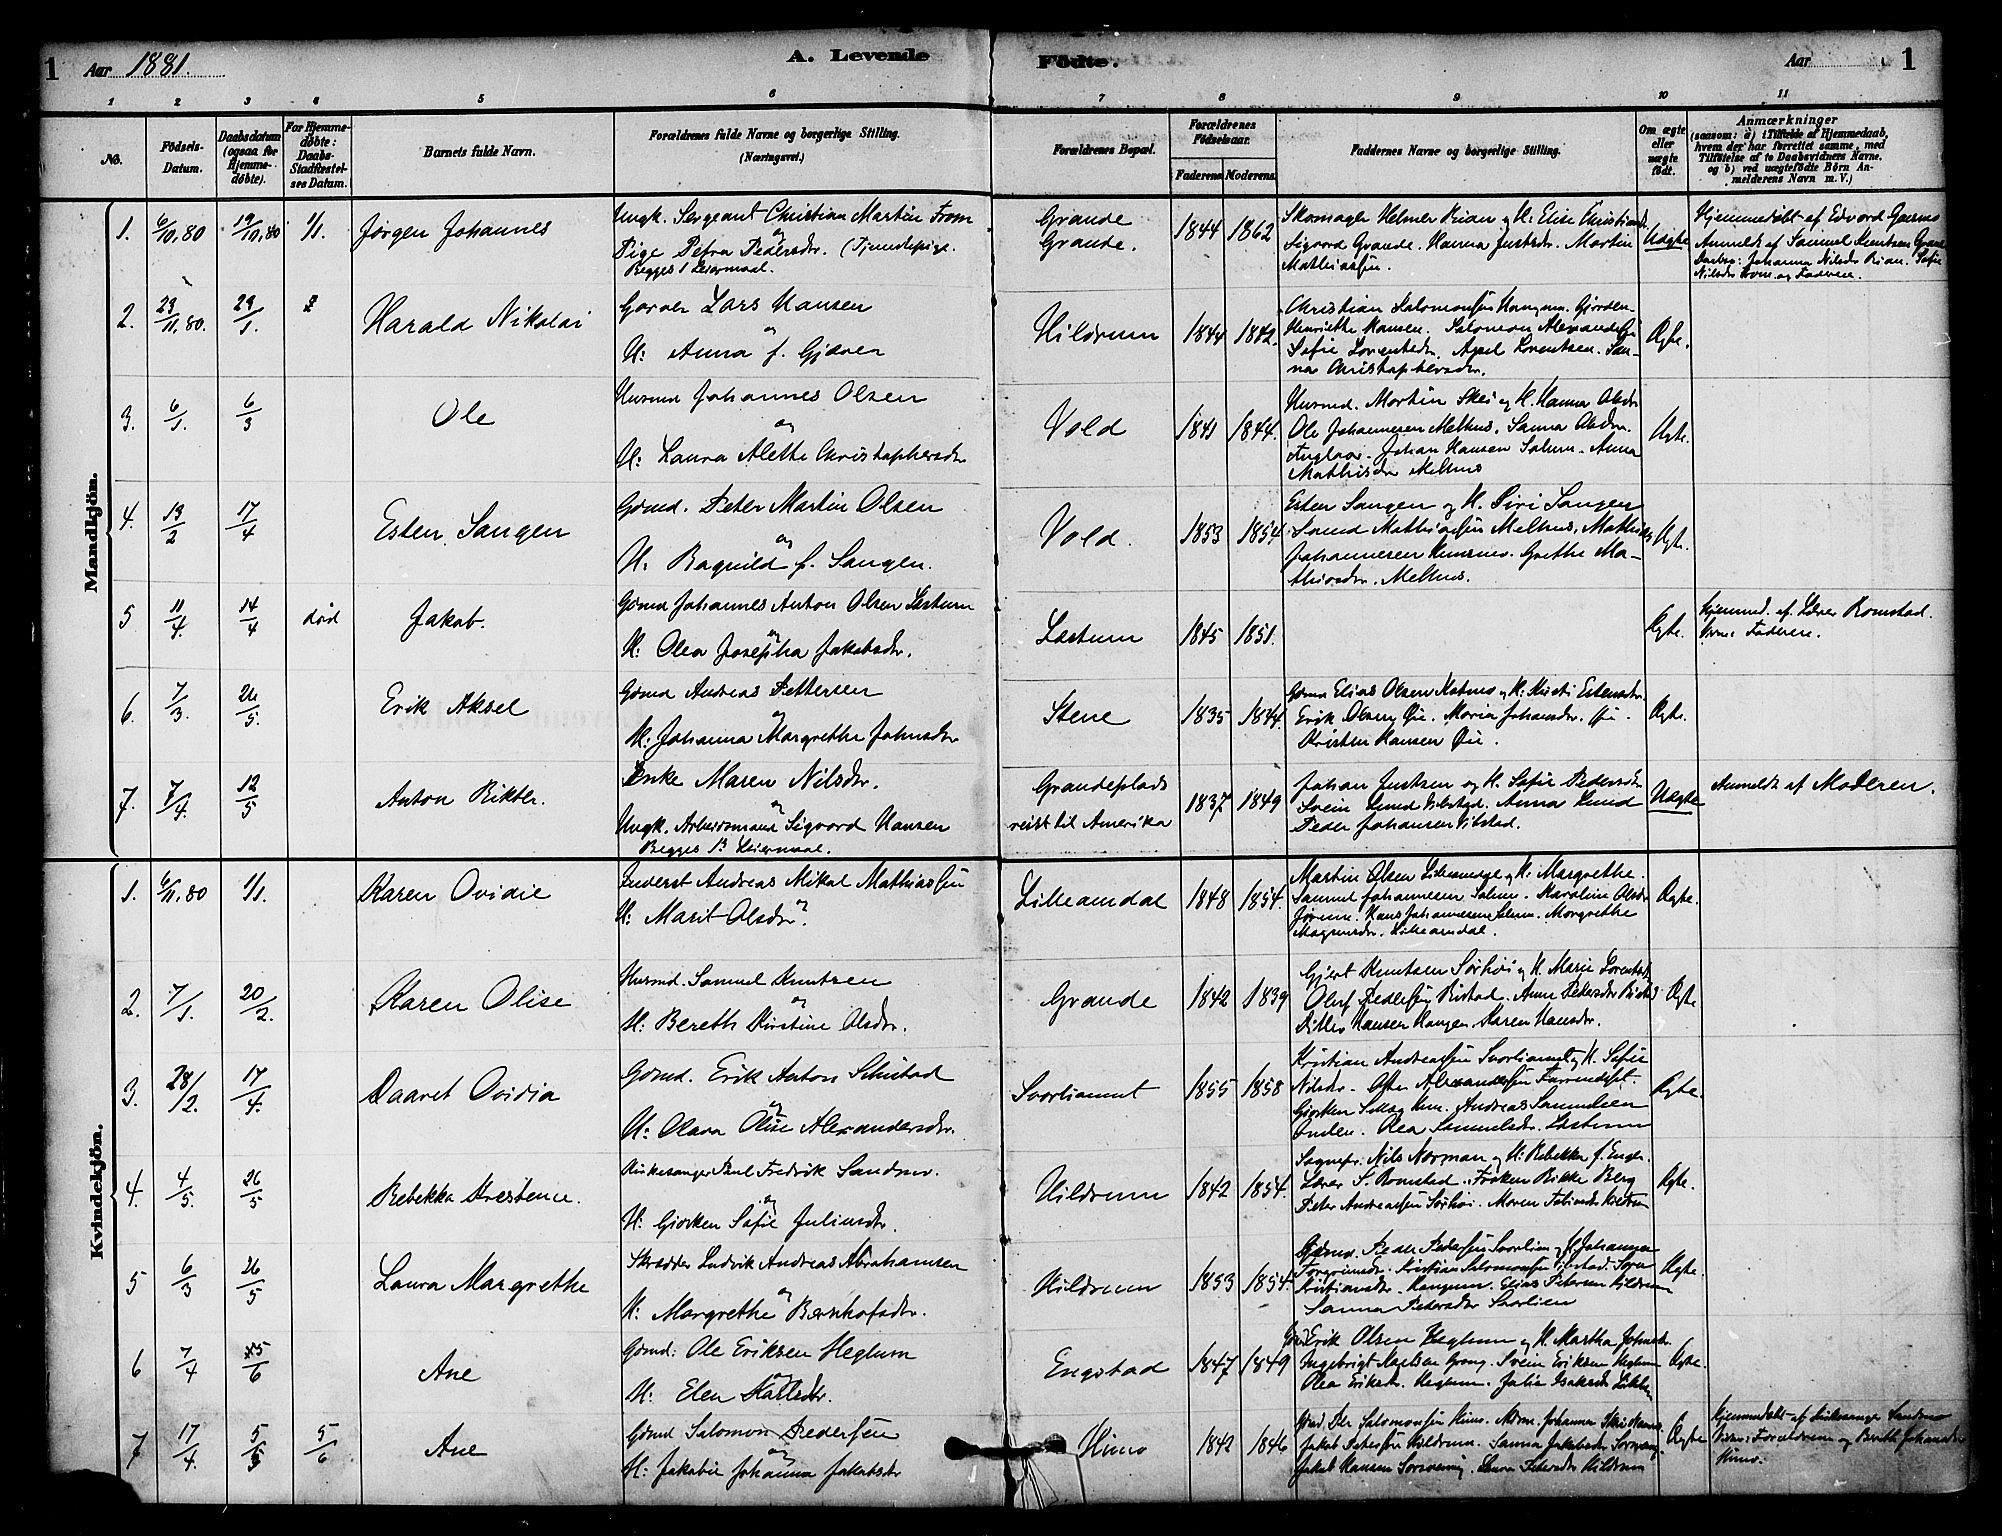 1 Aar 1881. A. Levende Födte. Aar 1
1 2 3 4 5 6 7 8 9 10 11
No. Födsels-Datum. Daabsdatum (ogsaa for Hjemme-döbte). For Hjemme-døbte: Daabs-Stadfæstel-ses Datum. Barnets fulde Navn. Forældrenes fulde Navne og borgerlige Stilling. (Næringsvei.) Forældrenes Bopæl. Forældrenes Födselsaar. Faderens Moderens Faddernes Navne og borgerlige Stilling. Om ægte eller uægte födt. Anmærkninger (saasom: a) i Tilfælde af Hjemmedaab, hvem der har forrettet samme, med Tilföielse af to Daabsvidners Navne. og b) ved uægtefödte Börn An-melderens Navn m. V.)
Mandkjön.
1. 6/10, 80 19/10, 80 1/1. Jørgen Johannes
Ungk. Sergeant Christian Martin From
og
Pige Petra Pedersdr. (Tjenestepige.
Begges 1 Leiermaal.
Grande
Grande.
1844 1862
Skomager Helmer Rian og H. Elise
Sigvard Grande. Hanna Justsdr. Martin
Mathiassen
Uægte
Hjemmedøbt af Edvard
Anmeldt af Samuel Knutsen Grande
Johanna Nilsdr Rian. Sofie
Nilsdr og Faderen.
2. 23/11, 80. 23/1. Harald Nikolai
Garver Lars Hansen
og
H: Anna f. Gjæver
Hildrum 1844 1842.
Christian Salomonsen
Henriette Hansen. Salomon
Sofie Lorentsdr. Axel Lorentsen. San-
na Christophersdr.
Ægte.
3. 6/1. 6/3 Ole
Husmd Johannes Olsen
og
H: Laura Alette Christophersdr
Vold 1841 1844.
Husmd. Martin Skei og H. Hanna Olsdr
Ole Johannesen Melhus. Sanna Olsdr.
Johan Hansen Salum. Anna
Mathisdr Melhus
Ægte.
4. 13/2 17/4 Esten Sangen
Gdmd. Peter Martin Olsen
og
H. Ragnild f. Sangen.
Vold. 1853 1854
Esten Sangen og H. Siri Sangen
Mathiassen Melhus. Mathias
Johannesen Grethe Ma-
thiasdr. Melhus.
Ægte.
5 11/4. 14/4 død Jakob.
Gdmd Johannes Anton Olsen Læstum
og
H: Olea Josepha Jakobsdr.
Læstum 1845 1851.
Ægte.
Hjemmed. af Lærer Romstad.
Faderen.
6. 7/3. 26/5. Erik Aksel
Gdmd Andreas Pettersen
og
H: Johanna Margrethe Johnsdr
Stene 1835 1844.
Gdmd Elias Olsen og H: Kirsti Estensdr.
Erik Olsen Øie. Maria Johansdr. Øie.
Kristen Hansen Øie.
Ægte.
7. 7/4. 12/5 Anton Rikter.
Enke Maren Nilsdr.
og
Ungk. Arbeidsmand Sigvard Hansen
Begges 1ste Leiermaal.
Grandeplads
reist til Amerika
1837 1849
Johan Justsen og H. Sofie Pedersdr
Svein Lund Vibstad. Anna Lund
Peder Johansen Vibstad.
Uægte
Anmeldt af Moderen.
Kvindekjön.
1. 6/11, 80 1/1. Karen Ovidie
Inderst Andreas Mikal Mathiassen
og
H: Marit Olsdr.
Lilleamdal 1848 1854.
Martin Olsen og H. Margrethe.
Samuel Johannesen Salum. Karoline Olsdr
Jørum. Hans Johannesen Salum. Margrethe
Magnusdr. Lilleamdal.
Ægte.
2. 7/1. 20/2. Karen Olise
Husmd. Samuel Knutsen
og
H: Bereth Kirstine Olsdr.
Grande 1842 1839
Gjert Knutsen Sørhøi og H. Marie Lorentsd
Oluf Pedersen Anne Pedersdr
Ditlev Hansen Haugen. Karen Hansdr.
Ægte
3. 28/12. 17/4. Daaret Ovidia
Gdmd. Erik Anton Schistad
og
H: Olava Olise Alexandersdr.
Svorliamet 1855 1858
Kristian Andreassen Svorliamet og H. Sofie
Nilsdr. Alexandersen
Andreas Samuelsen
Olea Samuelsdr. Læstum
Ægte.
4. 4/5. 26/5 Rebekka Kresence.
Kirkesanger Paul Fredrik Sandmo.
og
H: Gjørken Sofie Juliusdr.
Hildrum 1842 1854.
Sognepr. Nils Norman og H: Rebekka f. Enge.
Lærer S. Romstad. Frøken Rikke Berg
Peter Andreassen Sørhøi. Maren Hildrum
Ægte.
5 6/3 26/5 Laura Margrethe
Skrædder Ludvik Andreas Abrahamsen
og
H: Margrethe Bernhofsdr.
Hildrum 1853 1854.
Gdmd. Peder Pedersen Svorlien og H Johanna
Kristian Salomonsen
Kristiansdr. Haugum. Elias Petersen Hildrum
Sanna Pedersdr Svorlien
Ægte.
6 7/4 25/6 Ane
Gdmd: Ole Eriksen Heglum
og
H: Elen Karlsdr.
Engstad 1847 1849
Erik Olsen Heglum og H. Martha Johnsdr.
Ingebrigt Karlsen Grong. Svein Eriksen Heglum
Olea Eriksdr. Heglum. Julie Isaksdr
Ægte.
7 17/4. 5/5 5/6 Ane
Gdmd Salomon Pedersen
og
H: Jakobie Johanna Jakobsdr
Himo 1842 1846
Gdmd. Per Salomonsen Himo. Johanna
Jakob Petersen Hildrum. Sanna Jakobsdr
Jakob Hansen Laura Petersdr Hildrum
Ægte
Hjemmedøbt af Kirkesanger Sandmo
Forældrene og Bereth Johansdr
Himo.